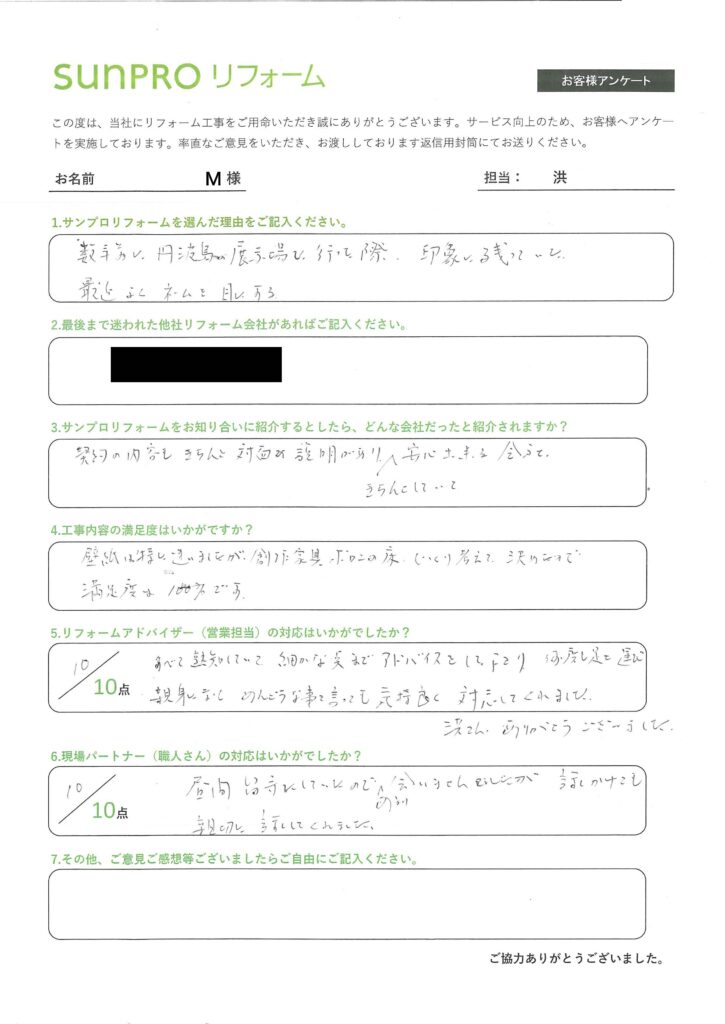 sunpro リフォーム
お客様アンケート
この度は、当社にリフォーム工事をご用命いただき誠にありがとうございます。サービス向上のため、お客様へアンケー
トを実施しております。率直なご意見をいただき、お渡ししております返信用封筒にてお送りください。
お名前 M 様 担当： 洪
1.サンプロリフォームを選んだ理由をご記入ください。
数年前に、丹波島の展示場に行った際、印象に残っていた。
最近よく ネームを 目にする
2.最後まで迷われた他社リフォーム会社があればご記入ください。
3.サンプロリフォームをお知り合いに紹介するとしたら、どんな会社だったと紹介されますか？
契約の内容も きちんと 対面の 説明があり、安心出来る 会社。
きちんとしていて
4.工事内容の満足度はいかがですか？
壁紙は特に迷いましたが、創作家具、ボロンの床、じっくり考えて、決めたので
満足度は 100%です
5.リフォームアドバイザー（営業担当）の対応はいかがでしたか？
10
10点
すべて 熟知していて 細かな 点まで アドバイスをして下さり 何度も足を運び
親身になり めんどうな事を言っても 気持良く 対応してくれました。
洪さん、ありがとうございました。
6.現場パートナー（職人さん）の対応はいかがでしたか？
10
10点
昼間 留守にしていたので 会いませんでしたが 話しかけても
あまり
親切に 話してくれました。
7.その他、ご意見ご感想等ございましたらご自由にご記入ください。
ご協力ありがとうございました。